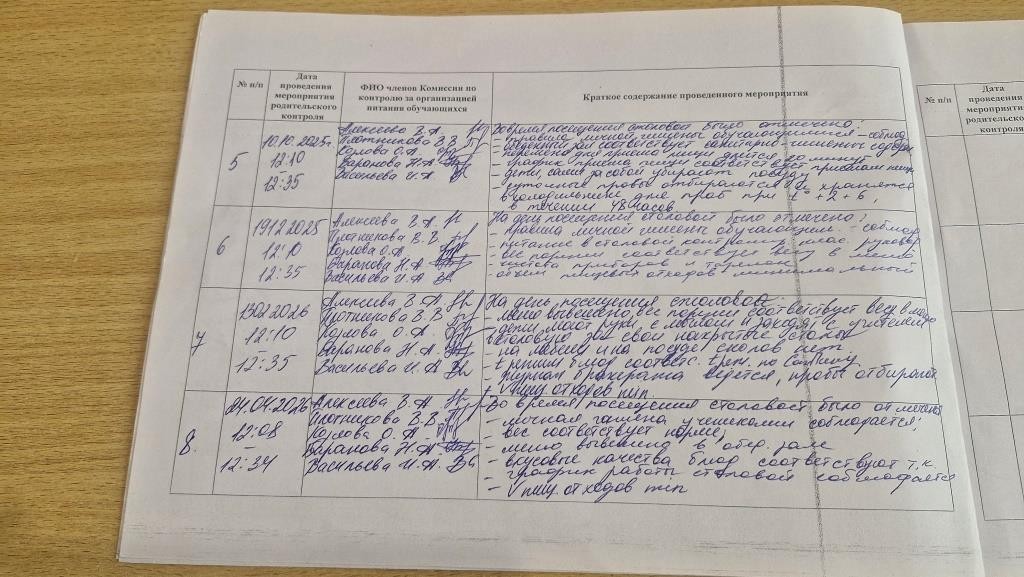 № п/п
Дата проведения мероприятия родительского контроля
ФИО членов Комиссии по контролю за организацией питания обучающихся
Краткое содержание проведенного мероприятия
5
10.10.2025г.
12:10
12:35
Алексеева В. А.
Плотникова В. В.
Козлова О. А.
Баранова Н. А.
Васильева И. А.
Во время посещения столовой было отмечено:
- правила личной гигиены обучающимися - соблюд.
- обеденный зал соответствует санитарно-гигиен. содерж.
- перемена для приёма пищи длится 20 минут
- график приёма пищи соответствует
- дети сами за собой убирают посуду
- суточные пробы отбираются и хранятся
в холодильнике для проб при t° +2 +6,
в течении 48 часов
6
19.12.2025
12:10
12:35
Алексеева В. А.
Плотникова В. В.
Козлова О. А.
Баранова Н. А.
Васильева И. А.
На день посещения столовой было отмечено:
- правила личной гигиены обучающим. - соблюд
- питание в столовой контролир. клас. руковод
- вес порции соответствует весу в меню
приборов и тарелок
- объём пищевых отходов минимальный
7
13.02.2026
12:10
12:35
Алексеева В. А.
Плотникова В. В.
Козлова О. А.
Баранова Н. А.
Васильева И. А.
На день посещения столовой
- меню вывешено, вес порции соответствует весу в меню
- дети моют руки с мылом и заходят с учителем
в столовую за свои накрытые столы
- на мебели и на посуде сколов нет
- t режим блюд соответс. t реж. по СанПину
- журнал бракеража ведётся, пробы отбирают
- V пищ. отходов min
8.
24.04.2026
12:08
12:34
Алексеева В. А.
Плотникова В. В.
Козлова О. А.
Баранова Н. А.
Васильева И. А.
Во время посещения столовой было отмечено
- личная гигиена учениками соблюдается;
- вес соответствует норме;
- меню вывешено в обед. зале
- вкусовые качества блюд соответствуют т.к.
- график работы столовой соблюдается
- V пищ. отходов min
№ п/п
Дата проведения мероприятия родительского контроля